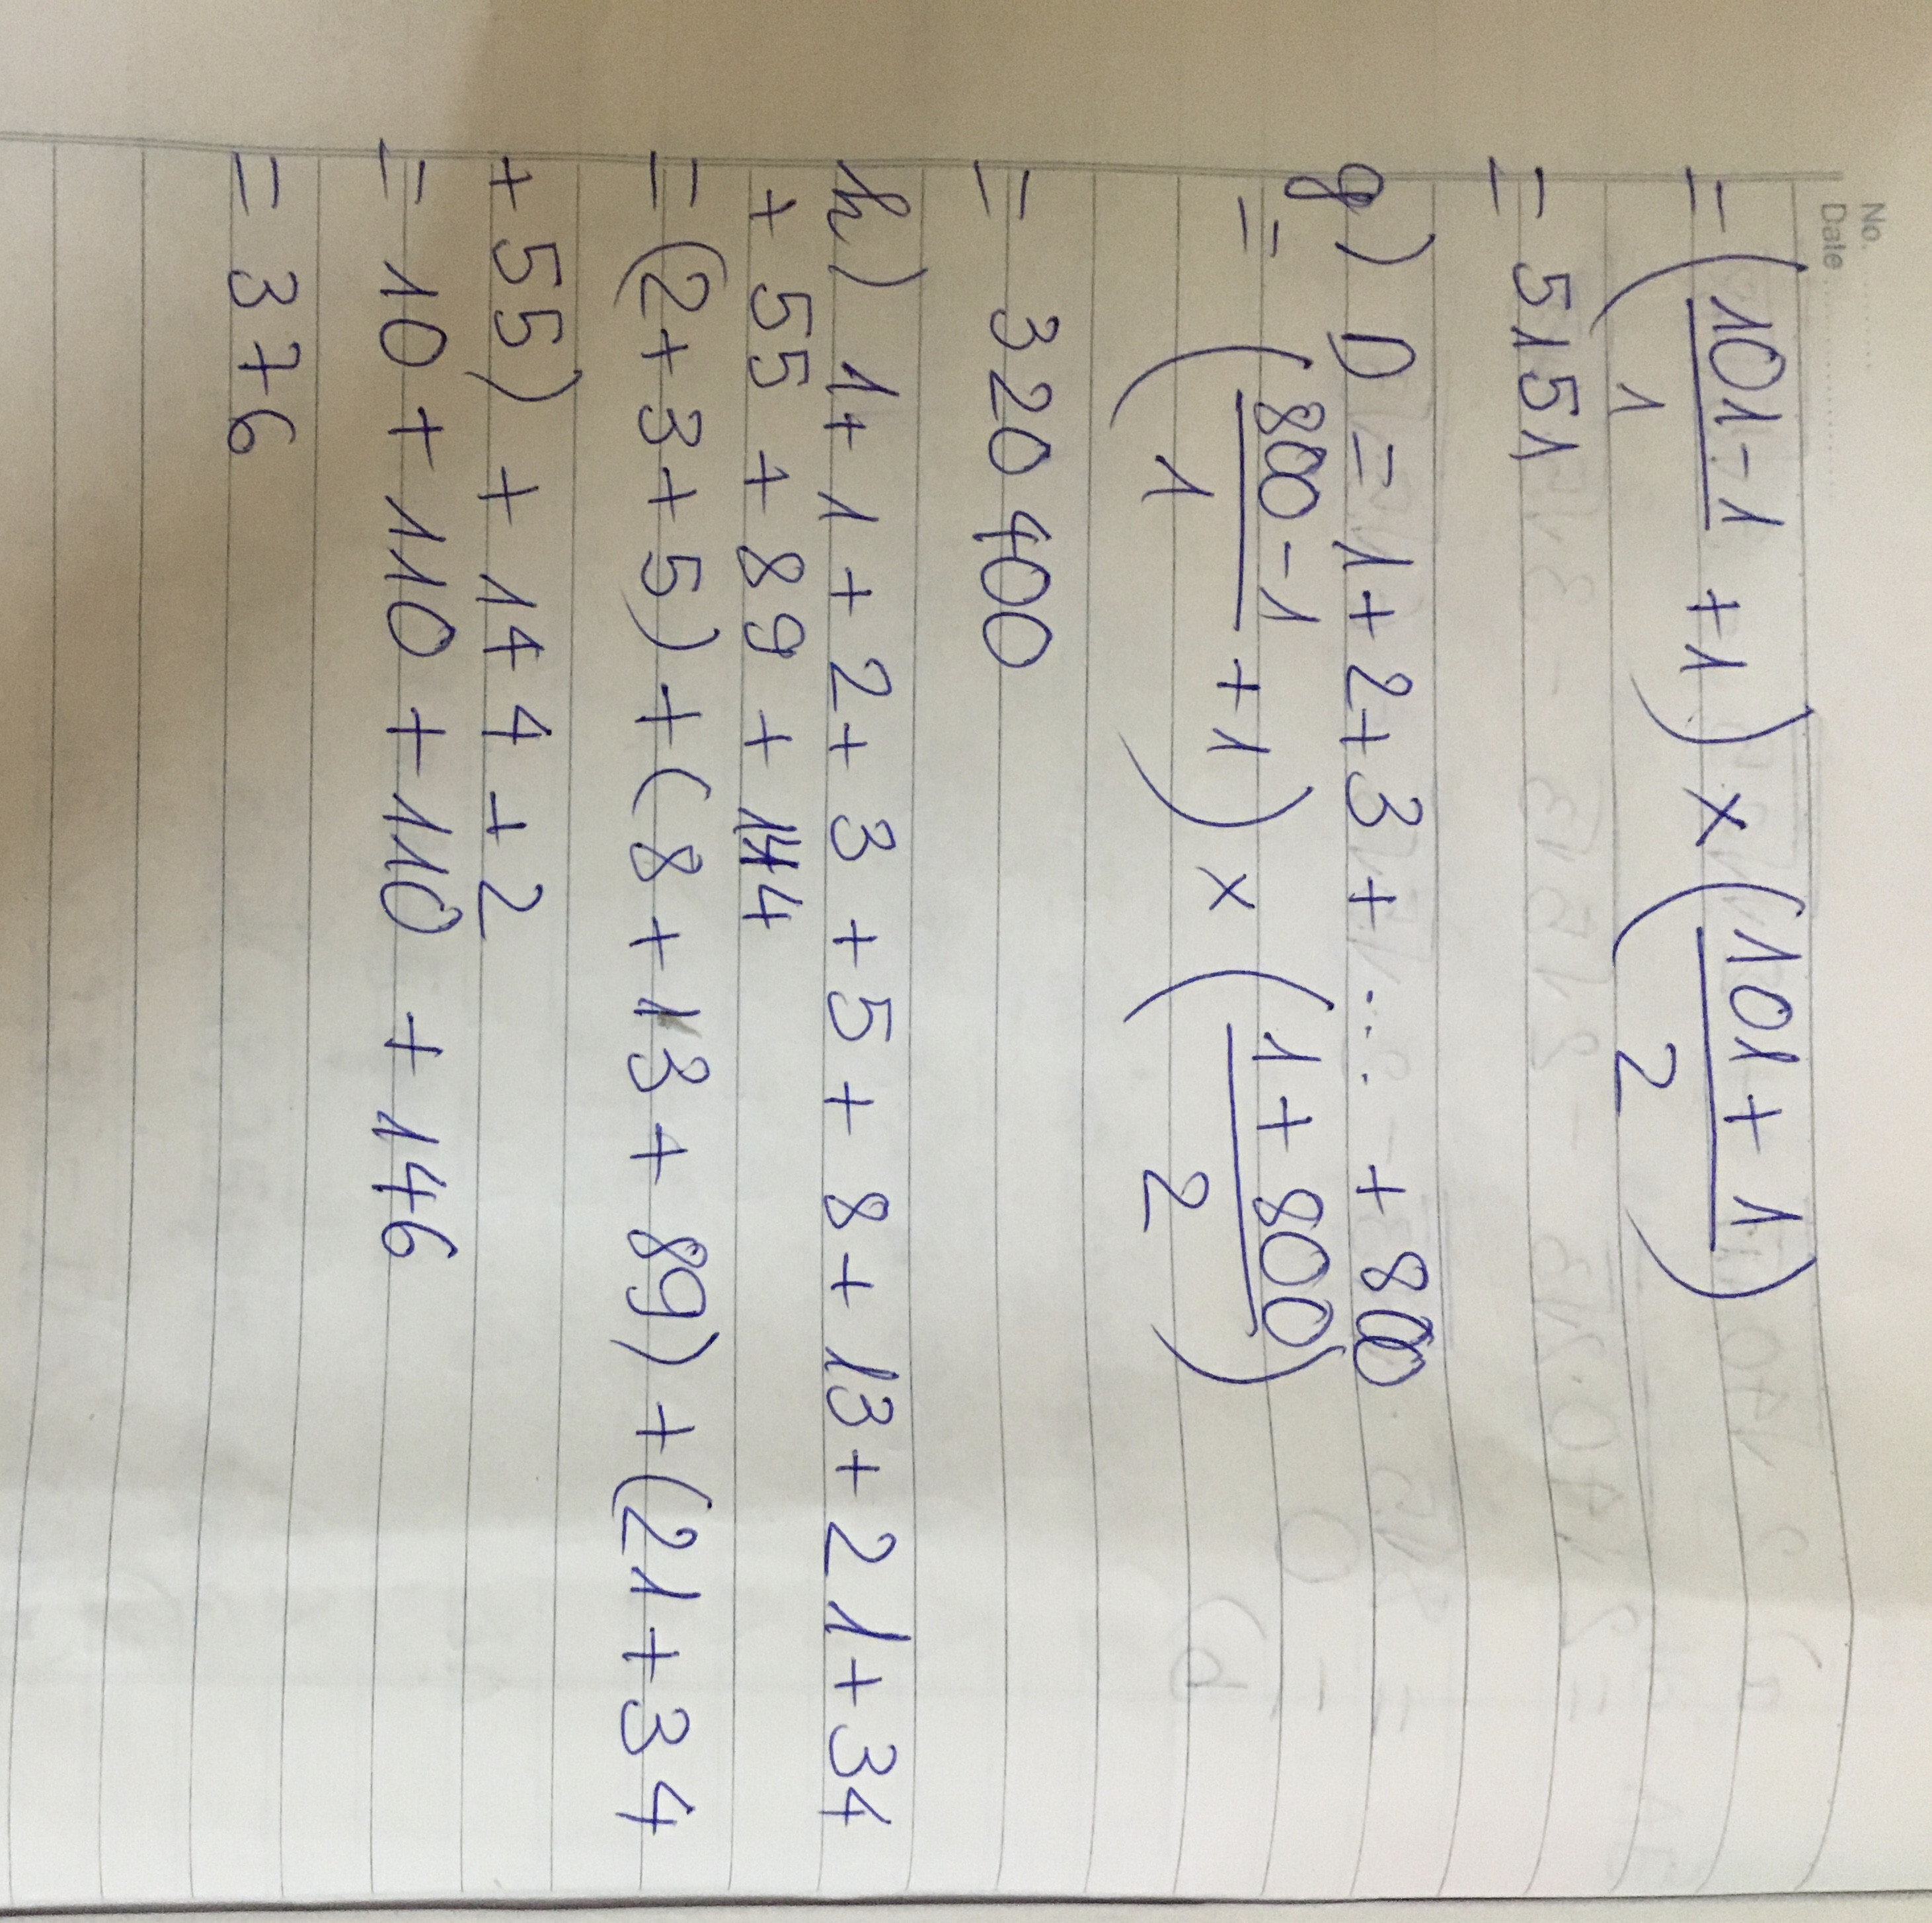 No.
Date
= ((101-1)/1 + 1) × ((101+1)/2)
= 5151
g) D = 1+2+3+ ... + 800
= ((800-1)/1 + 1) × ((1+800)/2)
= 320 400
h) 1+1+2+3+5+8+13+21+34
+55+89+144
= (2+3+5)+(8+13+89)+(21+34
+55)+144+2
= 10+110+110+146
= 376